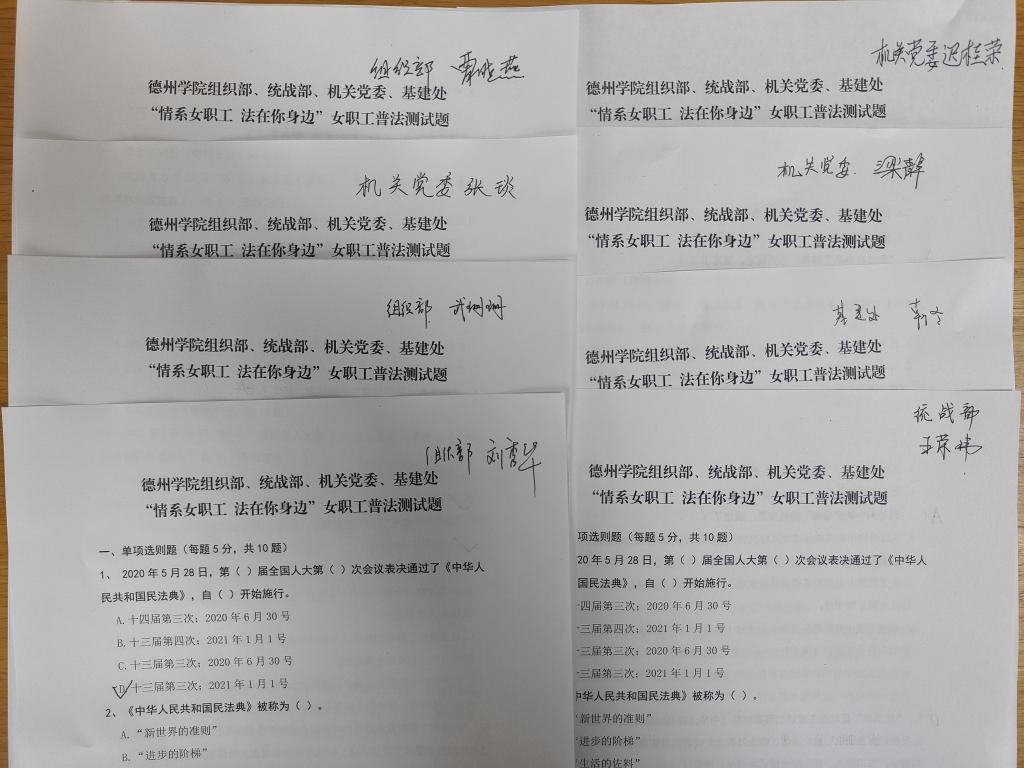 组织部
德州学院组织部、统战部、机关党委、基建处
“情系女职工 法在你身边”女职工普法测试题
机关党委 张琰
德州学院组织部、统战部、机关党委、基建处
“情系女职工 法在你身边”女职工普法测试题
组织部 武姗姗
德州学院组织部、统战部、机关党委、基建处
“情系女职工 法在你身边”女职工普法测试题
组织部 刘秀华
德州学院组织部、统战部、机关党委、基建处
“情系女职工 法在你身边”女职工普法测试题
一、单项选则题（每题5分，共10题）
1、 2020年5月28日，第（ ）届全国人大第（ ）次会议表决通过了《中华人
民共和国民法典》，自（ ）开始施行。
A.十四届第三次；2020年6月30号
B.十三届第四次；2021年1月1号
C.十三届第三次；2020年6月30号
D.十三届第三次；2021年1月1号
2、《中华人民共和国民法典》被称为（ ）。
A.“新世界的准则”
B.“进步的阶梯”
机关党委 迟桂荣
德州学院组织部、统战部、机关党委、基建处
“情系女职工 法在你身边”女职工普法测试题
机关党委
德州学院组织部、统战部、机关党委、基建处
“情系女职工 法在你身边”女职工普法测试题
基建处
德州学院组织部、统战部、机关党委、基建处
“情系女职工 法在你身边”女职工普法测试题
统战部
王荣
德州学院组织部、统战部、机关党委、基建处
“情系女职工 法在你身边”女职工普法测试题
项选则题（每题5分，共10题）
20年5月28日，第（ ）届全国人大第（ ）次会议表决通过了《中华人
国民法典》，自（ ）开始施行。
十四届第三次；2020年6月30号
十三届第四次；2021年1月1号
十三届第三次；2020年6月30号
十三届第三次；2021年1月1号
中华人民共和国民法典》被称为（ ）。
“新世界的准则”
“进步的阶梯”
“生活的佐料”